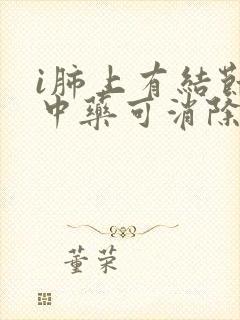 i肺上有結節
中藥可消除
董荣